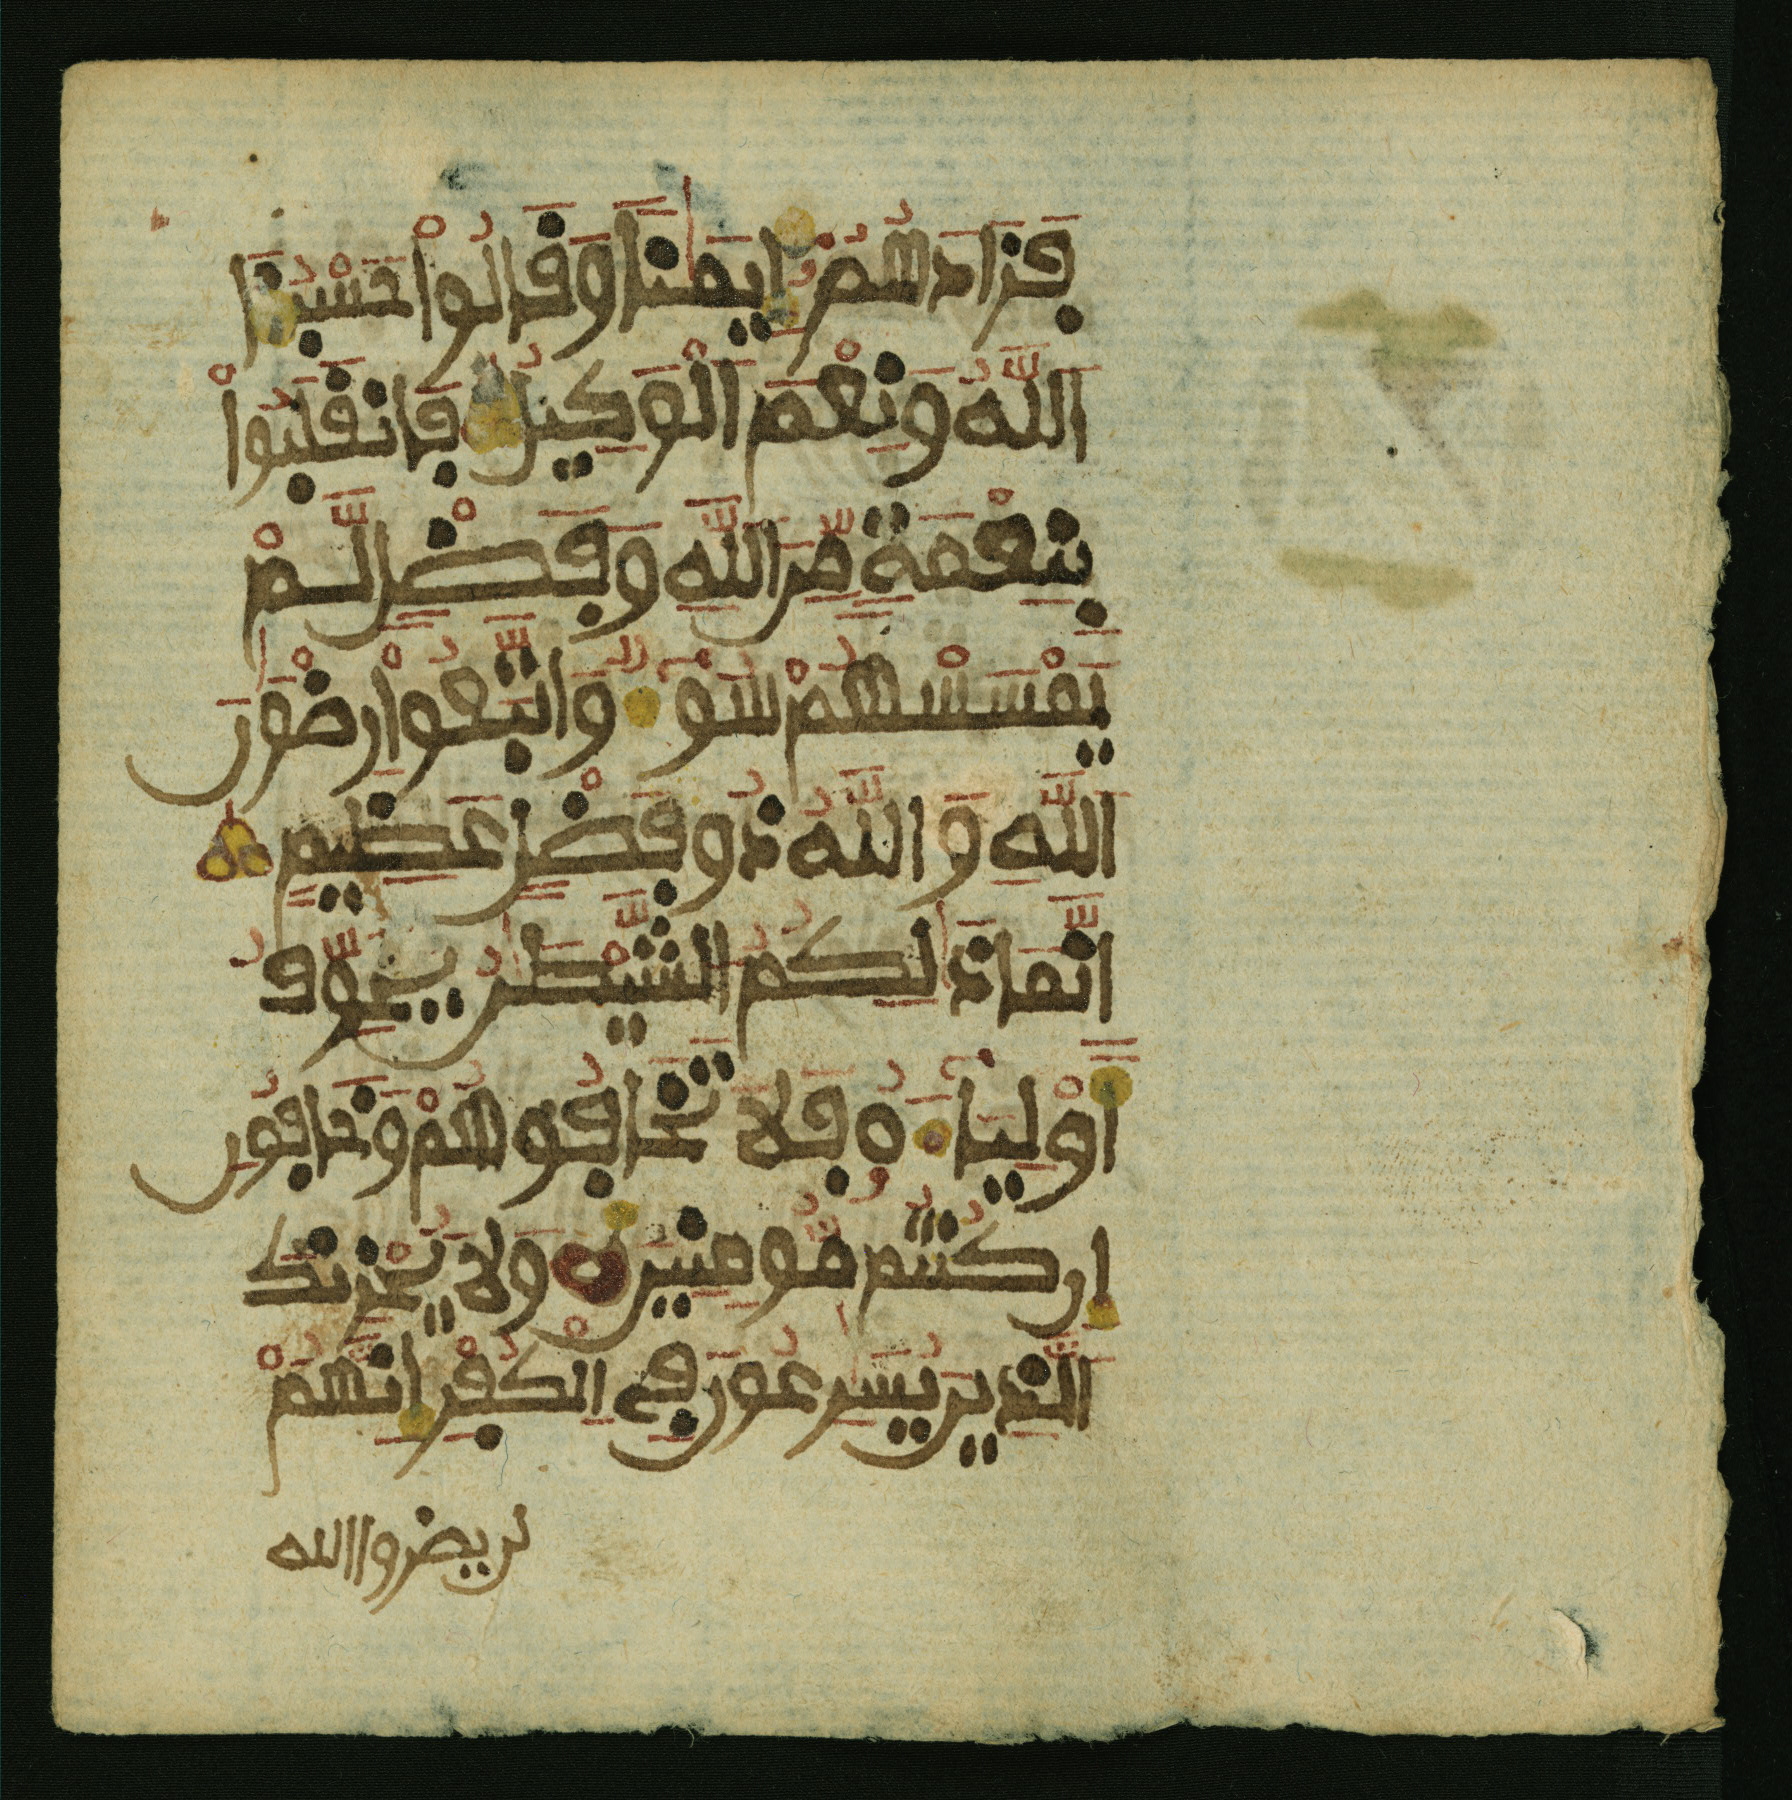 فَزَادَهُمُ إِيمَٰنًا وَقَالُوا۟ حَسْبُنَا
اَللَّهُ وَنِعْمَ اَلْوَكِيلُ فَانقَلَبُوا۟
بِنِعْمَةٍ مِّنَ اَللَّهِ وَفَضْلٍ لَّمْ
يَمْسَسْهُمْ سُوٓءٌ وَاتَّبَعُوا۟ رِضْوَٰنَ
اَللَّهِ وَاللَّهُ ذُو فَضْلٍ عَظِيمٍ
إِنَّمَا ذَٰلِكُمُ الشَّيْطَٰنُ يُخَوِّفُ
أَوْلِيَآءَهُ فَلَا تَخَافُوهُمْ وَخَافُونِ
إِن كُنتُم مُّومِنِينَ وَلَا يُحْزِنكَ
اَلَّذِينَ يُسَٰرِعُونَ فِي اِلْكُفْرِ إِنَّهُمْ
لن يضروا الله